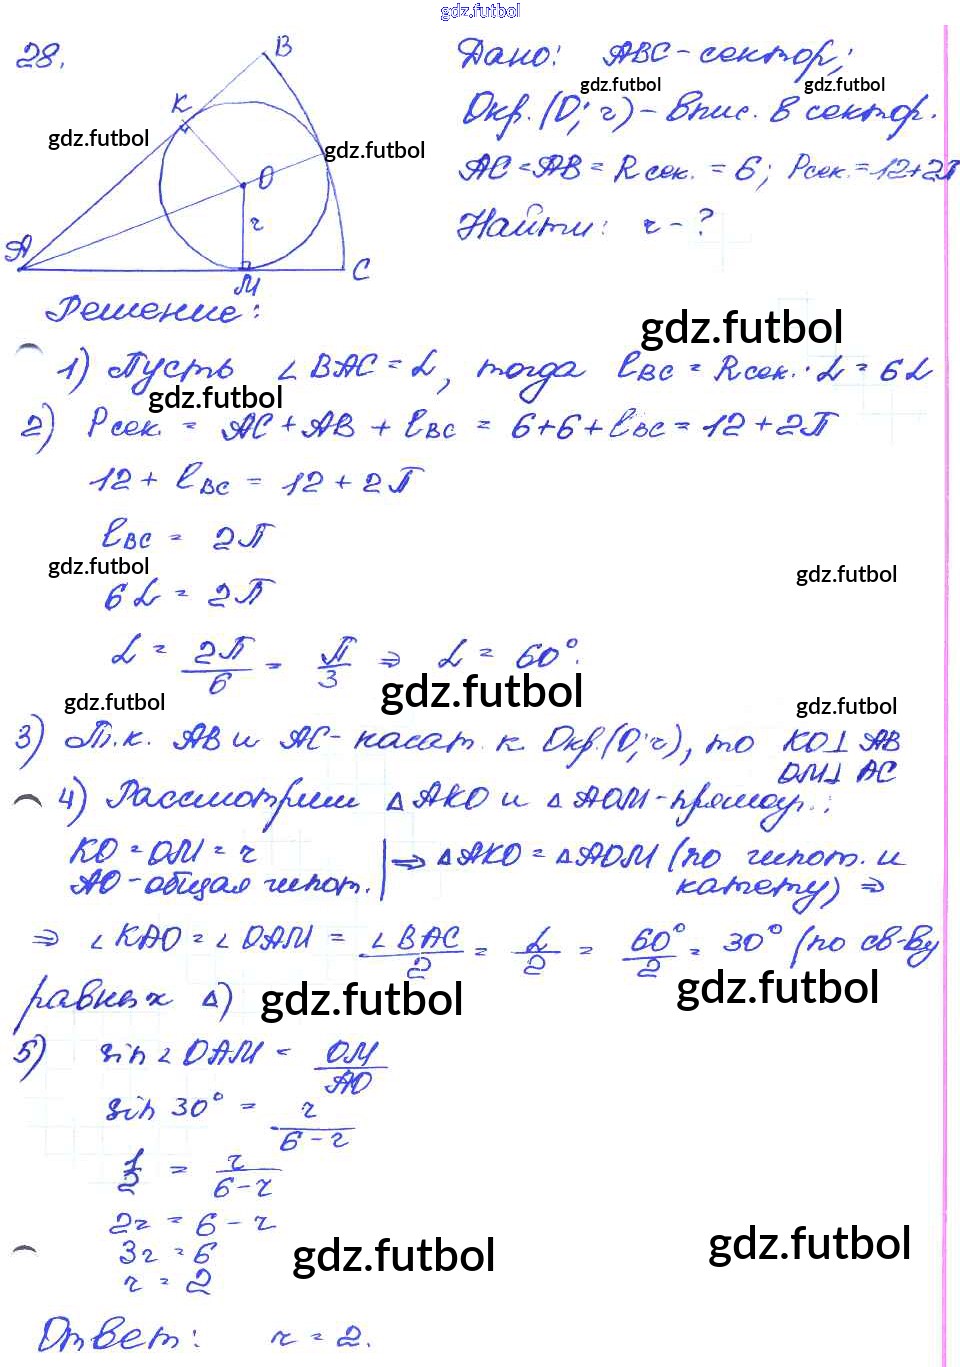 gdz.futbol
28.
B
K
O
r
A
M
C
gdz.futbol
gdz.futbol
Дано: ABC - сектор;
gdz.futbol gdz.futbol
Окр. (O; r) - впис. в сектор.
AC = AB = R сек. = 6; Pсек. = 12+2π
Найти: r - ?
Решение:
gdz.futbol
1) Пусть ∠BAC = α, тогда ℓBC = Rсек. · α = 6α
gdz.futbol
2) Pсек. = AC + AB + ℓBC = 6+6+ℓBC = 12+2π
12 + ℓBC = 12 + 2π
ℓBC = 2π
gdz.futbol gdz.futbol
6α = 2π
α = 2π/6 = π/3 ⇒ α = 60°.
gdz.futbol
gdz.futbol gdz.futbol
3) Т.к. AB и AC - касат. к Окр.(O; r), то KO⊥AB
OM⊥AC
4) Рассмотрим △AKO и △AOM - прямоуг.:
KO = OM = r
AO - общая гипот. | ⇒ △AKO = △AOM (по гипот. и
катету) ⇒
⇒ ∠KAO = ∠OAM = ∠BAC/2 = α/2 = 60°/2 = 30° (по св-ву
равных △)
gdz.futbol gdz.futbol
5) sin∠OAM = OM/AO
sin 30° = r/6-r
1/2 = r/6-r
2r = 6 - r
3r = 6
r = 2
gdz.futbol gdz.futbol
Ответ: r = 2.